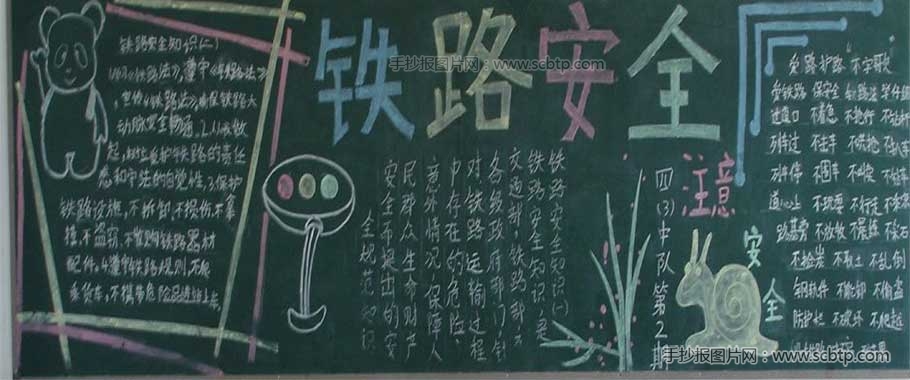 铁路安全
手抄报图片网：www.scbtp.com
铁路安全知识(二)
《铁路法》,遵守《铁路法》,
《铁路法》,确保铁路大
动脉安全畅通。2.从我做
起,树立爱护铁路的责任
感和守法的自觉性。3.保护
铁路设施,不拆卸、不损伤、不拿
不盗窃、不收购铁路器材
配件。4.遵守铁路规则,不爬
乘货车,不携带危险品进站上车。
铁路安全知识(一)
铁路安全知识,是
交通部、铁路部、
各级政府部门针
对铁路运输过程
中存在的危险、
意外情况,保障人
民群众生命财产
安全而提出的安
全规范知识
四(3)中队第2期
注意
安全
爱路护路 "不"字歌
爱铁路 保安全
过道口 不着急 不抢行
列车过
列车停
道心上 不玩耍 不行走
路基旁 不放牧
不捡炭 不取土 不乱倒
钢轨件 不能卸 不偷盗
防护栏 不破坏 不爬越
手抄报图片网：www.scbtp.com